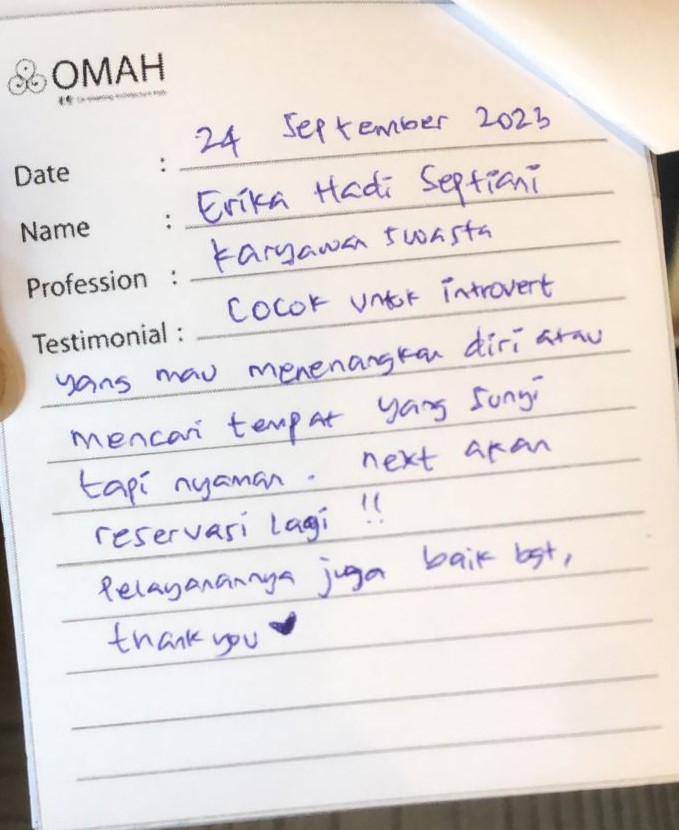 OMAH
Date : 24 September 2023
Name : Erika Hadi Septiani
Profession : Karyawan swasta
Testimonial : Cocok untuk introvert
yang mau menenangkan diri atau
mencari tempat yang sunyi
tapi nyaman. next akan
reservasi lagi !!
Pelayanannya juga baik bgt,
thank you ♥